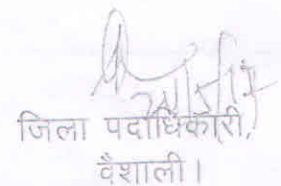 जिला पदाधिकारी,
वैशाली।